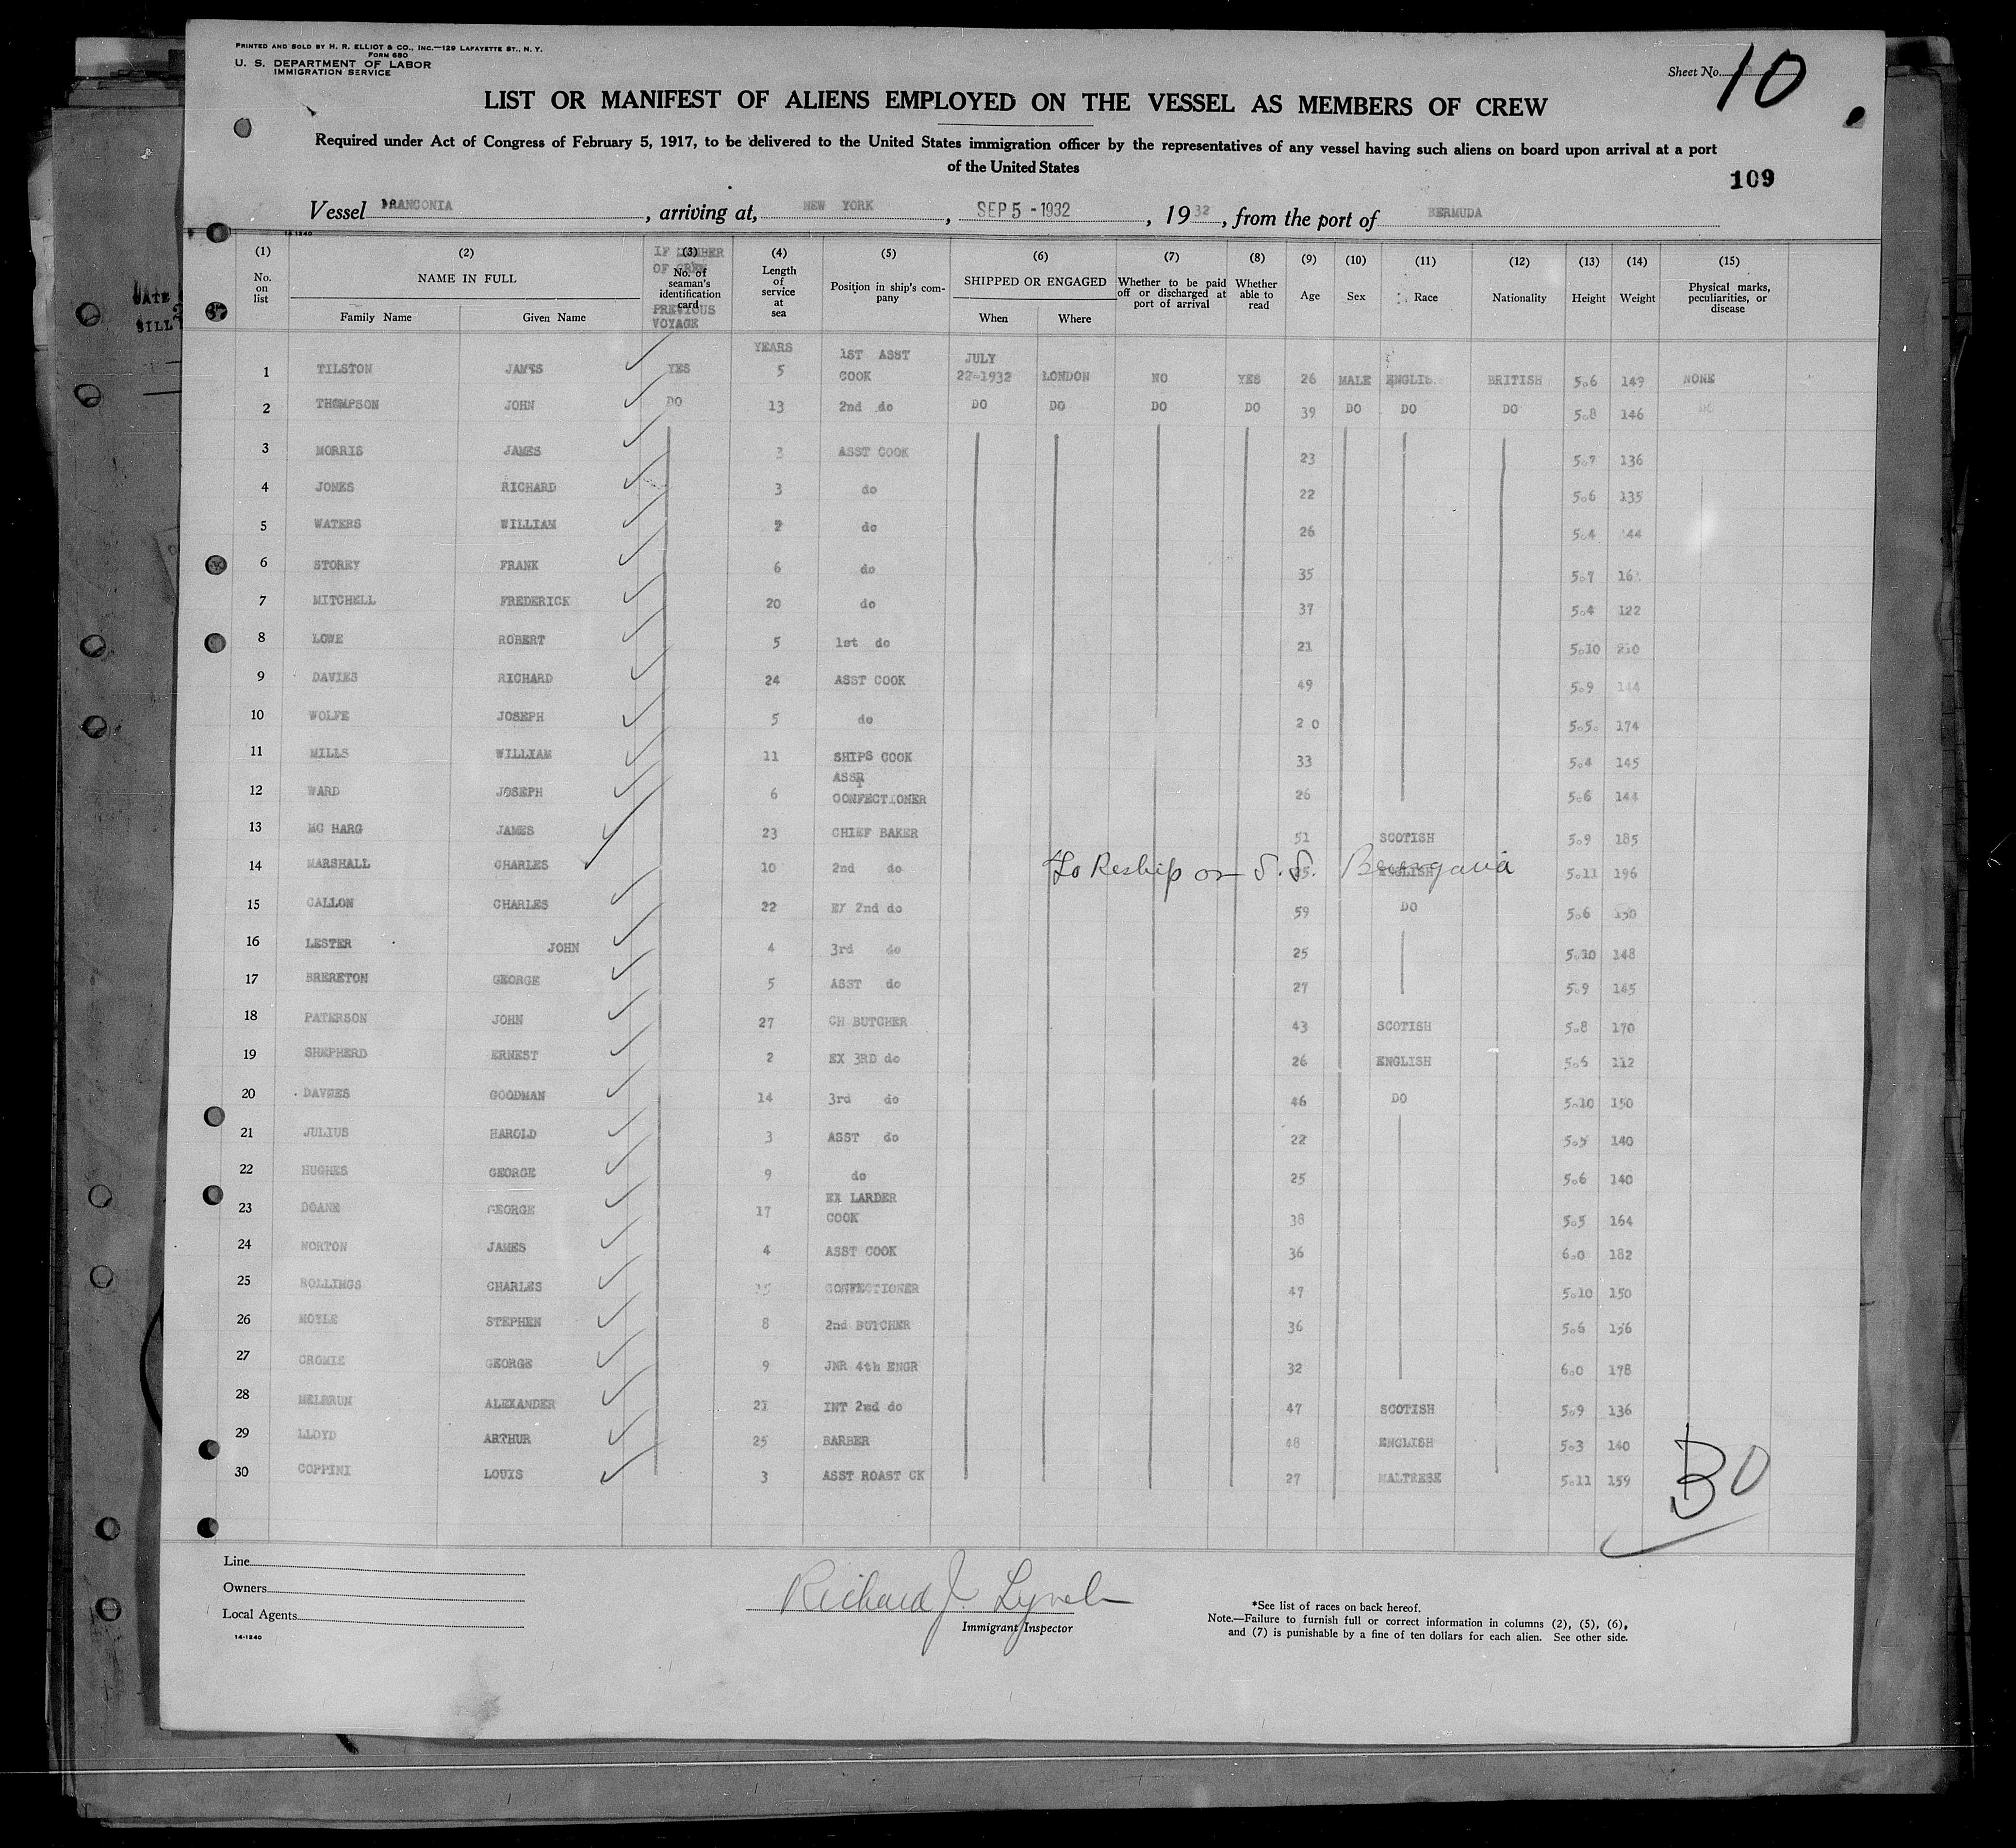 PRINTED AND SOLD BY H. R. ELLIOT & CO., INC.—129 LAFAYETTE ST., N. Y.
FORM 680
U. S. DEPARTMENT OF LABOR
IMMIGRATION SERVICE
Sheet No. 10
LIST OR MANIFEST OF ALIENS EMPLOYED ON THE VESSEL AS MEMBERS OF CREW
Required under Act of Congress of February 5, 1917, to be delivered to the United States immigration officer by the representatives of any vessel having such aliens on board upon arrival at a port
of the United States
109
Vessel FRANCONIA, arriving at, NEW YORK, SEP 5 - 1932, 1932, from the port of BERMUDA
14-1240
(1) No. on list
(2) NAME IN FULL Family Name Given Name
IF MEMBER OF CREW (3) No. of seaman's identification card PREVIOUS VOYAGE
(4) Length of service at sea
(5) Position in ship's company
(6) SHIPPED OR ENGAGED When Where
(7) Whether to be paid off or discharged at port of arrival
(8) Whether able to read
(9) Age
(10) Sex
(11) Race
(12) Nationality
(13) Height
(14) Weight
(15) Physical marks, peculiarities, or disease
YEARS 1ST ASST JULY
1 TILSTON JAMES YES 5 COOK 22-1932 LONDON NO YES 26 MALE ENGLIS BRITISH 5.6 149 NONE
2 THOMPSON JOHN DO 13 2nd do DO DO DO DO 39 DO DO DO 5.8 146 DO
3 MORRIS JAMES 3 ASST COOK 23 5.7 136
4 JONES RICHARD 3 do 22 5.6 135
5 WATERS WILLIAM 2 do 26 5.4 144
6 STOREY FRANK 6 do 35 5.7
7 MITCHELL FREDERICK 20 do 37 5.4 122
8 LOWE ROBERT 5 1st do 21 5.10 210
9 DAVIES RICHARD 24 ASST COOK 49 5.9 144
10 WOLFE JOSEPH 5 do 2 0 5.5. 174
11 MILLS WILLIAM 11 SHIPS COOK 33 5.4 145
12 WARD JOSEPH 6 ASST CONFECTIONER 26 5.6 144
13 MC HARG JAMES 23 CHIEF BAKER 51 SCOTISH 5.9 185
14 MARSHALL CHARLES 10 2nd do To Reship on S.S. Berengaria 35 ENGLISH 5.11 196
15 CALLON CHARLES 22 EX 2nd do 59 DO 5.6 150
16 LESTER JOHN 4 3rd do 25 5.10 148
17 BRERETON GEORGE 5 ASST do 27 5.9 145
18 PATERSON JOHN 27 CH BUTCHER 43 SCOTISH 5.8 170
19 SHEPHERD ERNEST 2 EX 3RD do 26 ENGLISH 5.6 112
20 DAVIES GOODMAN 14 3rd do 46 DO 5.10 150
21 JULIUS HAROLD 3 ASST do 22 5.5 140
22 HUGHES GEORGE 9 do 25 5.6 140
23 DOANE GEORGE 17 EX LARDER COOK 38 5.5 164
24 NORTON JAMES 4 ASST COOK 36 6.0 182
25 ROLLINGS CHARLES CONFECTIONER 47 5.10 150
26 MOYLE STEPHEN 8 2nd BUTCHER 36 5.6 156
27 CROMIE GEORGE 9 JNR 4th ENGR 32 6.0 178
28 MELBRUN ALEXANDER 21 INT 2nd do 47 SCOTISH 5.9 136
29 LLOYD ARTHUR 25 BARBER 48 ENGLISH 5.3 140
30 COPPINI LOUIS 3 ASST ROAST CK 27 MALTRESE 5.11 159
30
Line
Owners
Local Agents
14-1240
Richard J. Lynch
Immigrant Inspector
*See list of races on back hereof.
Note.—Failure to furnish full or correct information in columns (2), (5), (6),
and (7) is punishable by a fine of ten dollars for each alien. See other side.